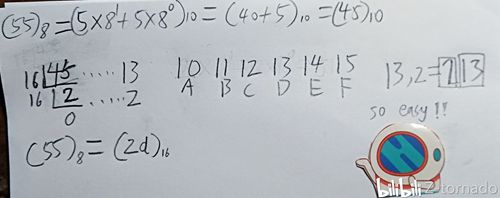 (55)₈=(5×8¹+5×8⁰)₁₀=(40+5)₁₀=(45)₁₀
16 45 ..... 13
16 2 ..... 2
0
10 11 12 13 14 15
A B C D E F
13,2=2 13
so easy!!
(55)₈=(2d)₁₆
bilibili Z-tornado